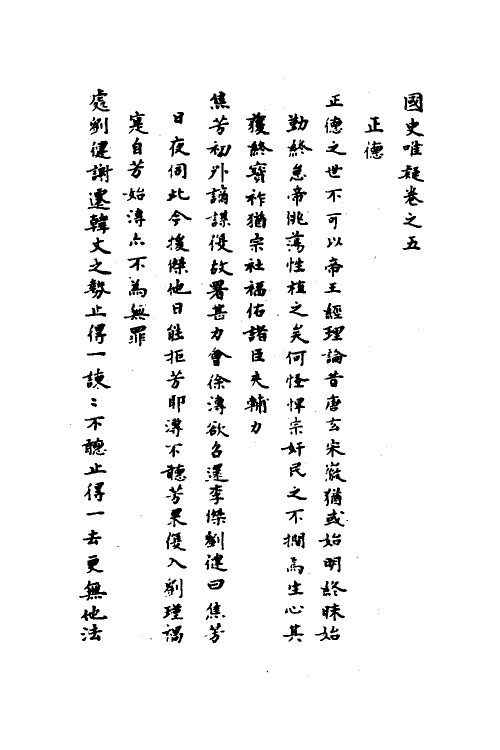 國史唯疑卷之五
正德
正德之世不可以帝王經理論昔唐玄宋徽猶或始明終昧始
勤終怠帝佻蕩性植之矣何怪悍宗奸民之不擱焉生心其
獲終寶祚猶宗社福佑諸臣夾輔力
焦芳初外謫謀復故署甚力會徐溥欲召還李傑劉健曰焦芳
日夜伺此今援傑他日能拒芳耶溥不聽芳果復入劉瑾禍
寔自芳始溥亦不為無罪
處劉健謝遷韓文之勢止得一諫〻不聽止得一去更無他法